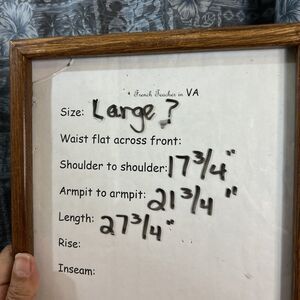 French Teacher in VA
Size: Large?
Waist flat across front:
Shoulder to shoulder: 17 3/4"
Armpit to armpit: 21 3/4"
Length: 27 3/4"
Rise:
Inseam: